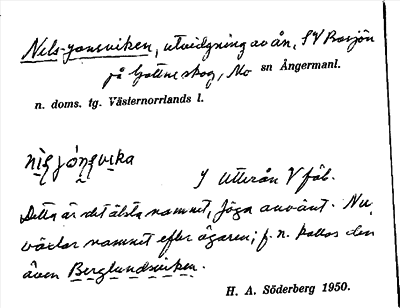 Nels-jonsviken, utvidgning av ån, SV Rosjön
på Gottne skog, Mo sn Ångermanl.
n. doms. tg. Västernorrlands l.
i Utterån V fäb.
Detta är det älsta namnet, föga använt. Nu
växlar namnet efter ägaren; f. n. kallas den
även Berglundsviken.
H. A. Söderberg 1950.